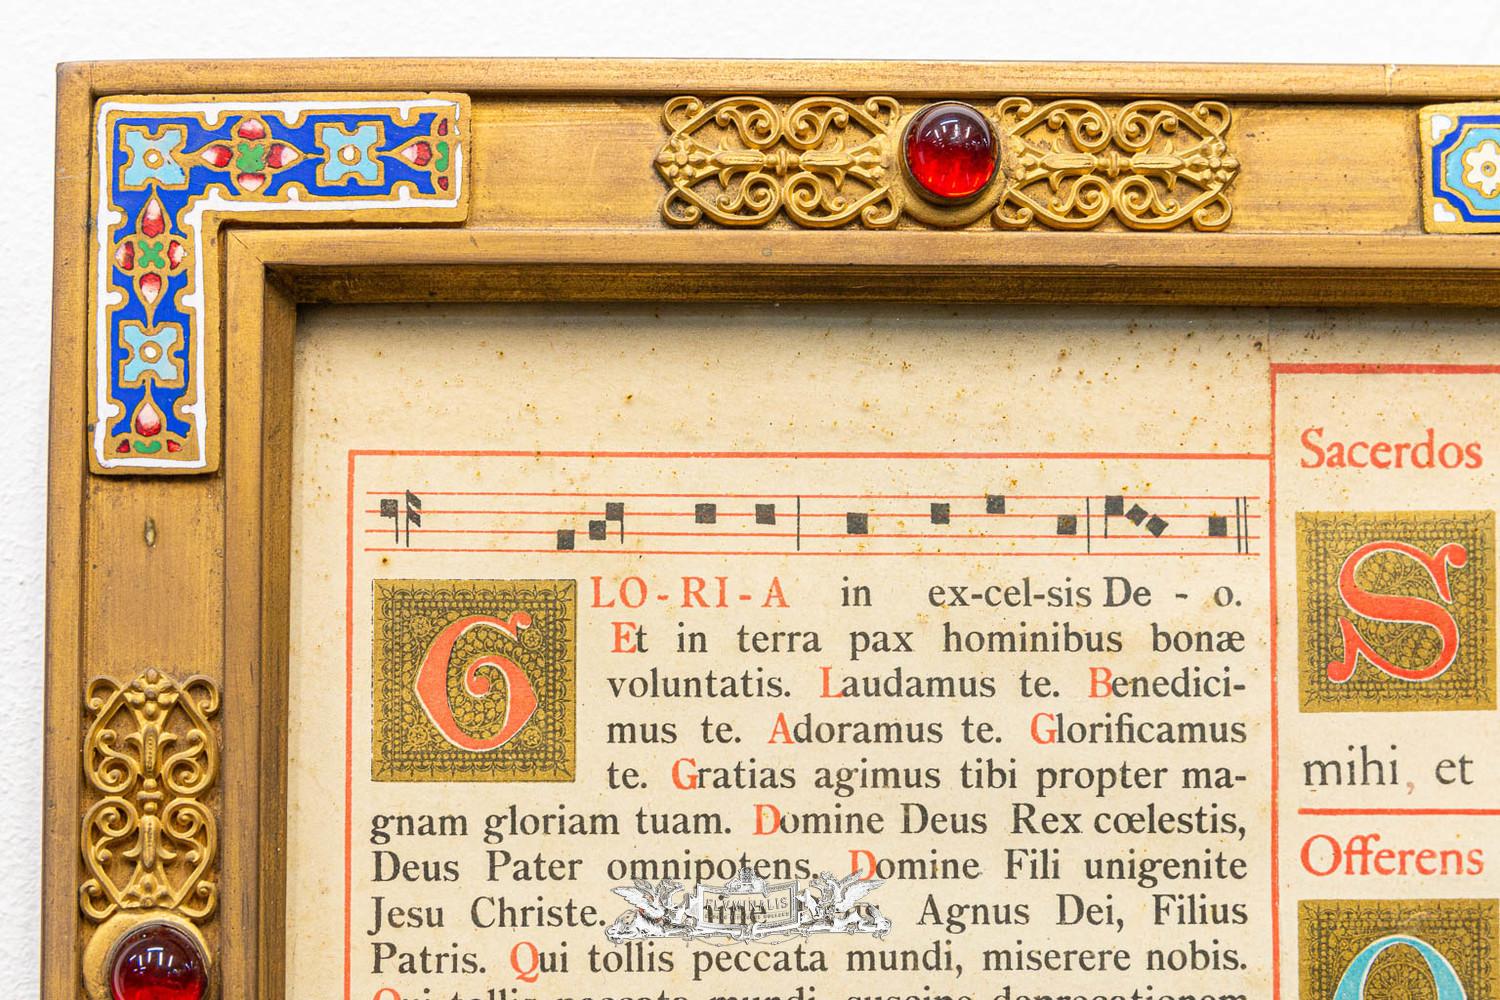 GLO-RI-A in ex-cel-sis De - o.
Et in terra pax hominibus bonæ
voluntatis. Laudamus te. Benedici-
mus te. Adoramus te. Glorificamus
te. Gratias agimus tibi propter ma-
gnam gloriam tuam. Domine Deus Rex cœlestis,
Deus Pater omnipotens. Domine Fili unigenite
Jesu Christe. Agnus Dei, Filius
Patris. Qui tollis peccata mundi, miserere nobis.
Qui tollis peccata mundi, suscipe deprecationem
Sacerdos
S
mihi, et
Offerens
FLUMINALIS